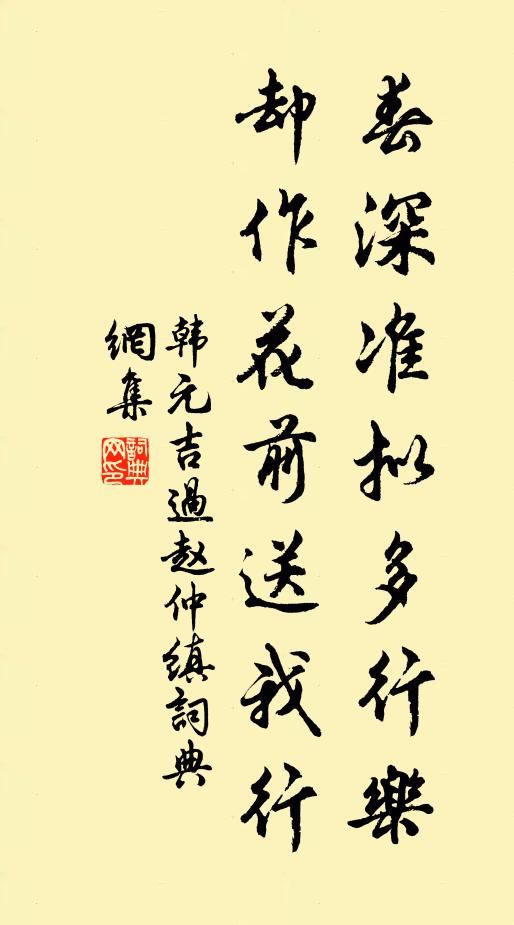 春深准拟多行樂
却作花前送我行
韩元吉過赵仲縝詞典
網集
詞典網印